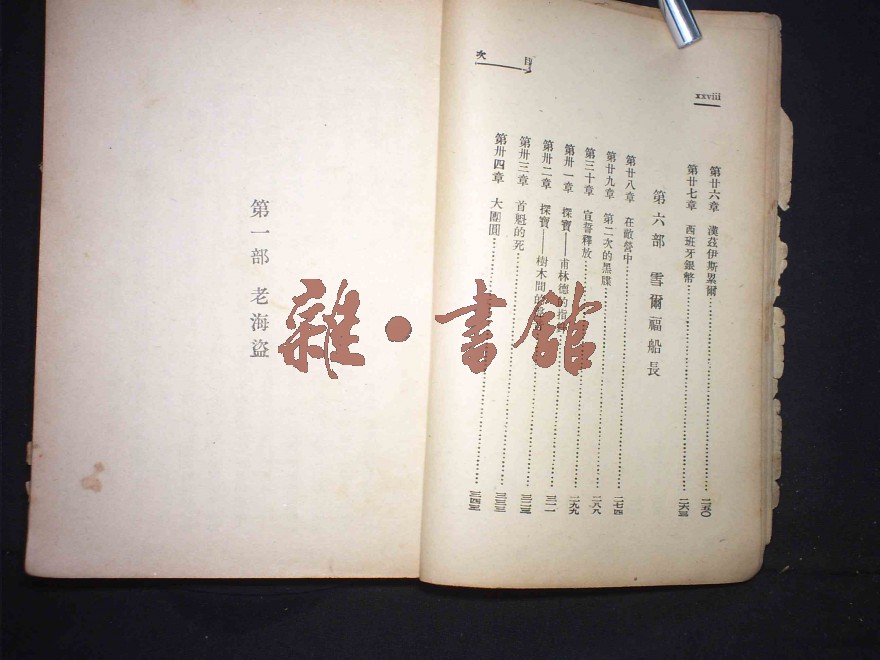 xxviii
目次
第廿六章 漢茲伊斯累爾 二五〇
第廿七章 西班牙銀幣 二六三
第六部 雪爾福船長
第廿八章 在敵營中 二七四
第廿九章 第二次的黑牒 二八八
第三十章 宣誓釋放 二九九
第卅一章 探寶——甫林德的指 三一一
第卅二章 探寶——樹木間的 三二三
第卅三章 首魁的死 三三三
第卅四章 大團圓 三四三
第一部 老海盜
雜·書館